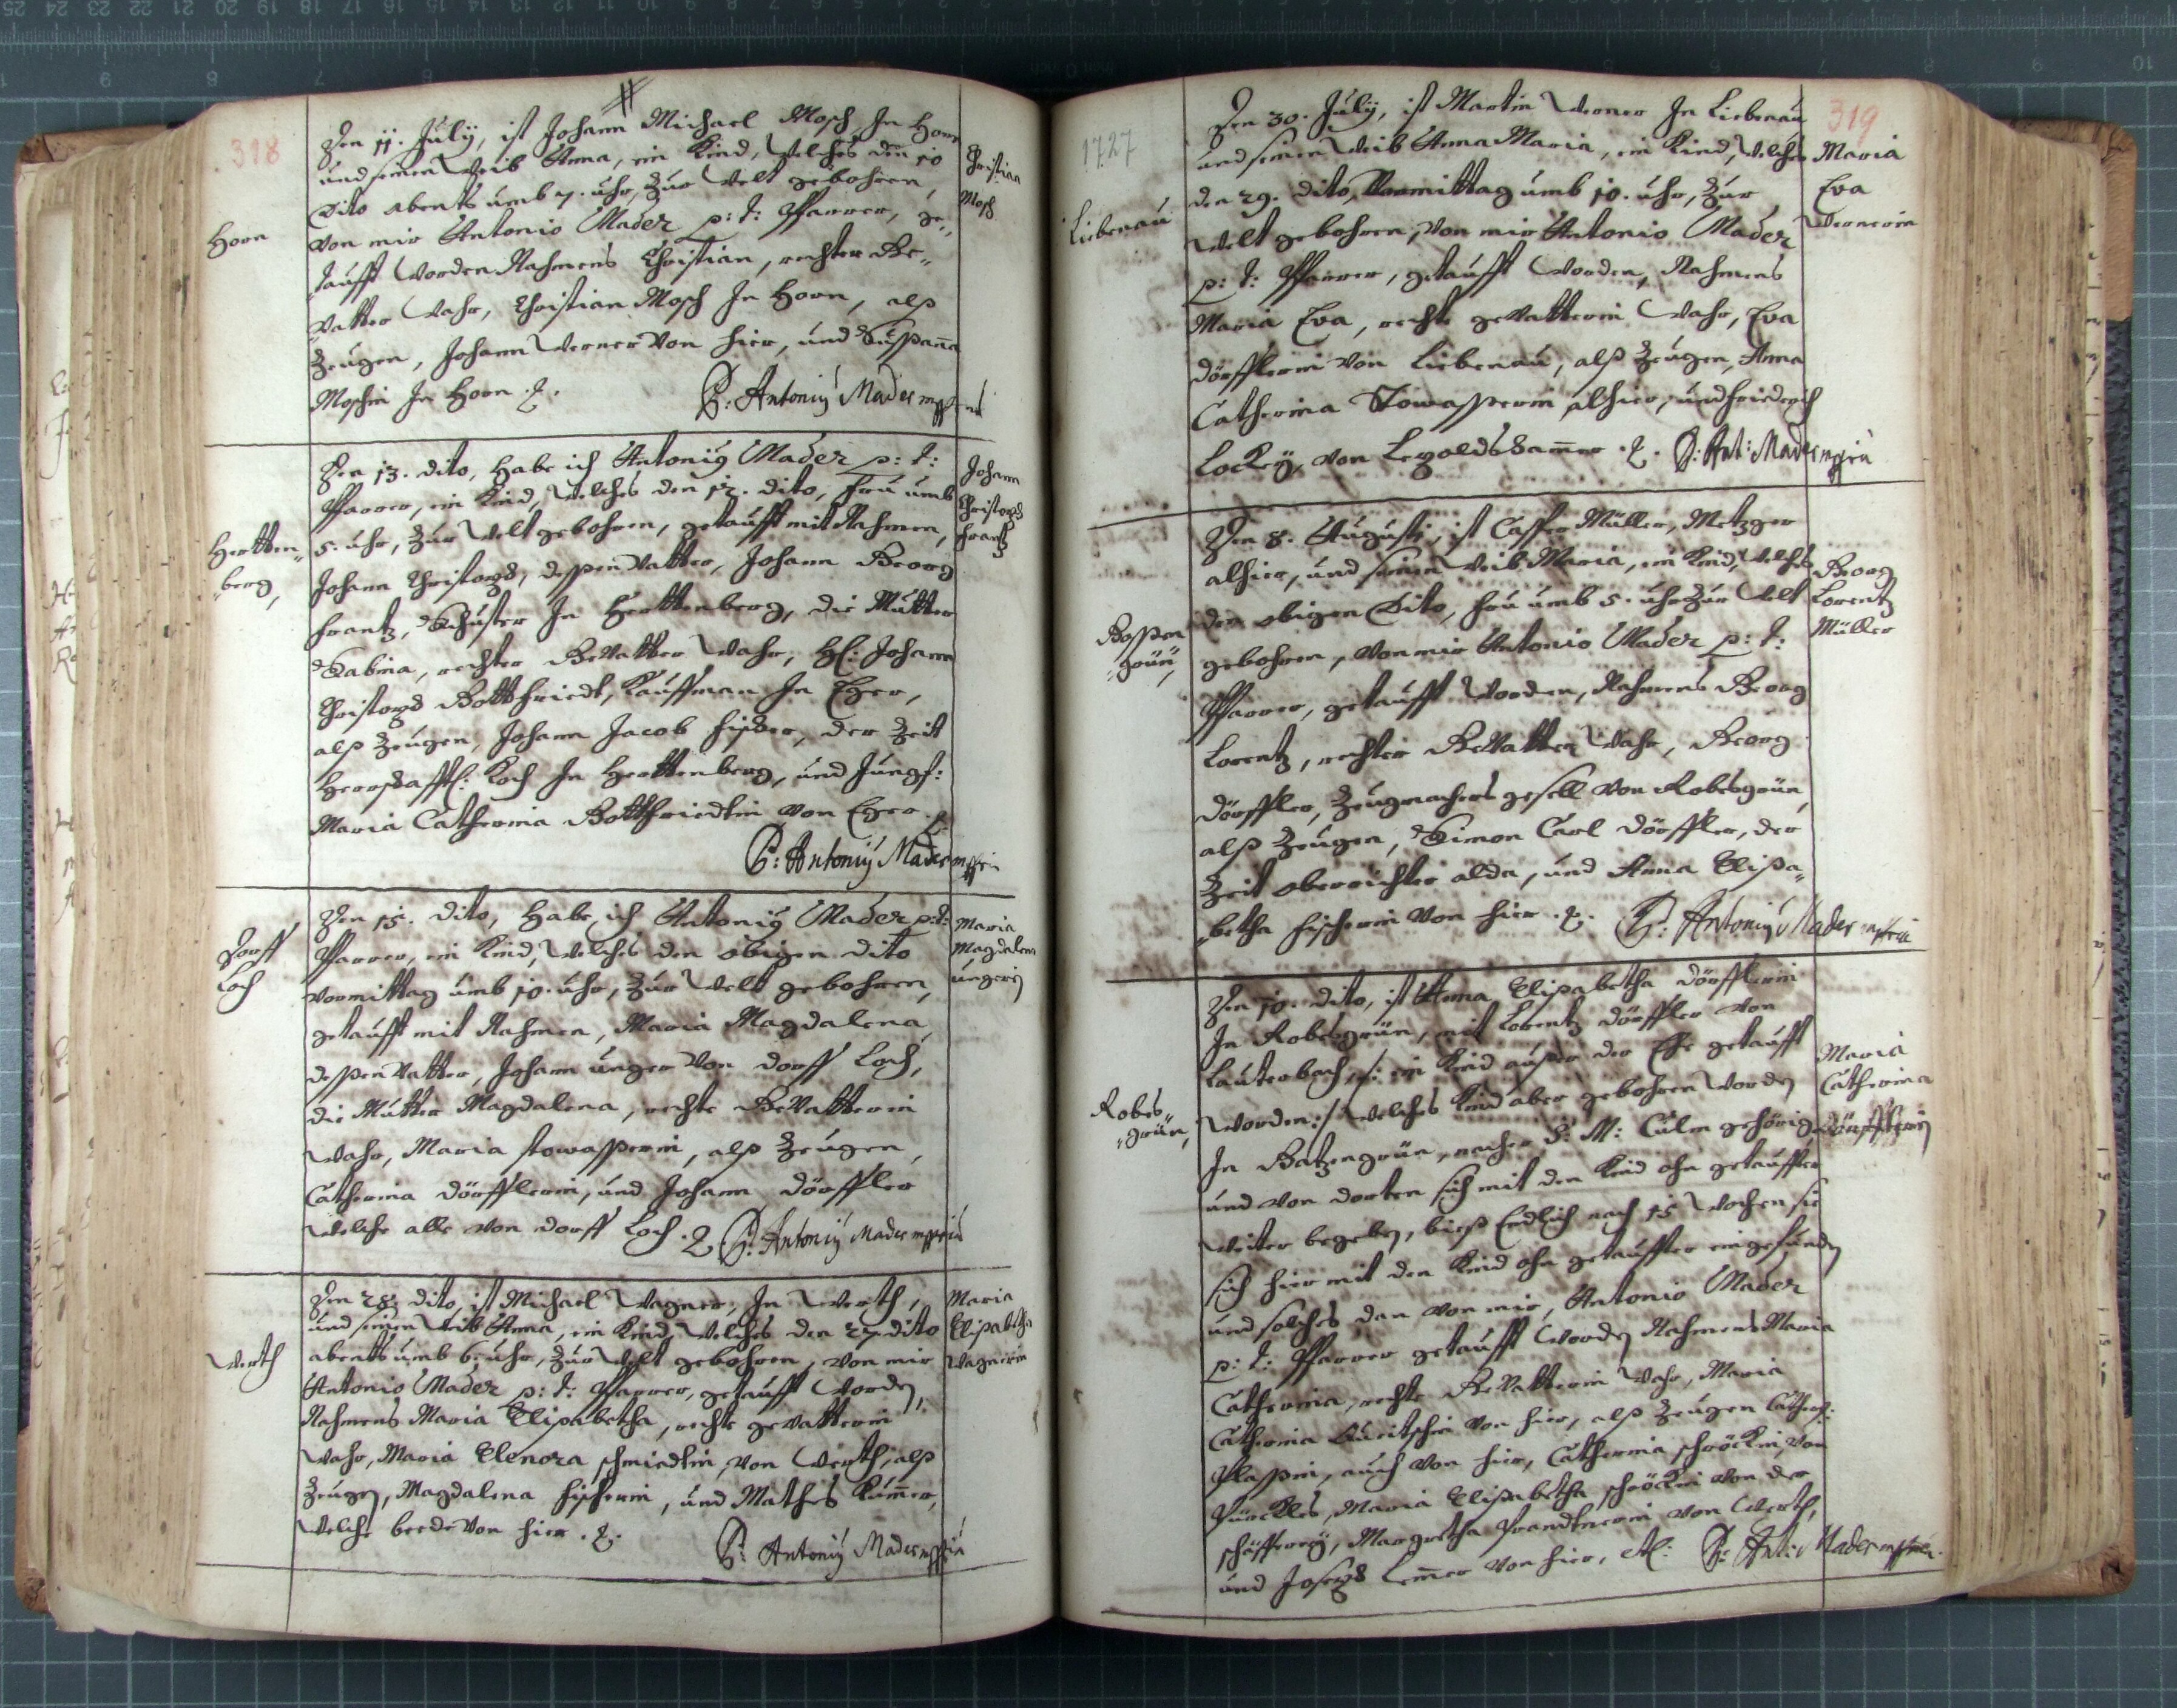 318
Horn
Den 11. July, ist Johann Michael Mosch In Horn
und seinen Weib Anna, ein Kind, welches den 10
dito abents umb 7. uhr, Zur Welt gebohren,
von mir Antonio Mader p: t: Pfarrer, ge„
„taufft worden Nahmens Christian, rechter Ge„
„vatter wahr, Christian Mosch In Horn, alß
Zeugen, Johann Werner von hier, und Sußanna
Moschin In Horn
P: Antoniy Mader mppria
Christian
Mosch
Hertten„
„berg,
Den 13. dito, habe ich Antoniy Mader p: t:
Pfarrer, ein Kind, welches den 12. dito, fru umb
5. uhr, Zur Welt gebohren, getaufft mit Nahmen,
Johann Christoph, dessen Vatter, Johann Georg
Frantz, Schuster In Herttenberg, die Mutter
Sabina, rechter Gevatter wahr, H: Johann
Christoph Gottfriedt, Kauffman In Eger,
alß Zeugen, Johann Jacob Fischer, der Zeit
Herrschafftl: Koch In Herttenberg, und Jungf:
Maria Catherina Gottfriedtin von Eger
P: Antoniy Mader mppria
Johann
Christoph
Frantz
Dorff
Loch
Den 15. dito, habe ich Antoniy Mader p: t:
Pfarrer, ein Kind, welches den obigen dito
vormittag umb 10. uhr, Zur Welt gebohren,
getaufft mit Nahmen, Maria Magdalena,
dessen Vatter, Johann Unger von Dorff Loch,
die Mutter Magdalena, rechte Gevatterin
wahr, Maria Stowasserin, alß Zeugen,
Catherina Dörfflerin, und Johann Dörffler
welche alle von Dorff Loch
P: Antoniy Mader mppria
Maria
Magdalena
Ungerin
Werth
Den 28. dito, ist Michael Wagner, In Werth,
und seinen Weib Anna, ein Kind, welches den 27. dito
abents umb 6. uhr, Zur Welt gebohren, von mir
Antonio Mader p: t: Pfarrer, getaufft worden,
Nahmens Maria Elisabetha, rechte gevatterin
wahr, Maria Elenora Schmiedtin, von Werth, alß
Zeugen, Magdalena Fischerin, und Mathes Kummer,
welche beede von hier
P: Antoniy Mader mppria
Maria
Elisabetha
Wagnerin
319
1727
Liebenau
Den 30. July, ist Martin Werner In Liebenau
und seinen Weib Anna Maria, ein Kind, welches
den 29. dito, Vormittag umb 10. uhr, Zur
Welt gebohren, von mir Antonio Mader
p: t: Pfarrer, getaufft worden, Nahmens
Maria Eva, rechte gevatterin wahr, Eva
Dörfflerin von Liebenau, alß Zeugen, Anna
Catherina Stowasserin alhier, und Friederich
von Leopoldshammer
P: Ant: Mader mppria
Maria
Eva
Wernerin
Goßen
„grün,
Den 8. Augusti, ist Casper Müller, Metzger
alhier, und seinen Weib Maria, ein Kind, welches
den obigen dito, fru umb 5. uhr Zur Welt
gebohren, von mir Antonio Mader p: t:
Pfarrer, getaufft worden, Nahmens Georg
Lorentz, rechter Gevatter wahr, Georg
Dörffler, Zeugmachers gesell von Robesgrün,
alß Zeugen, Simon Carl Dörffler, der
Zeit oberrichter alda, und Anna Elisa„
„betha Fischerin von hier
P: Antoniy Mader mppria
Georg
Lorentz
Müller
Robes„
„grün,
Den 10. dito, ist Anna Elisabetha Dörfflerin
In Robesgrün, mit Lorentz Dörffler von
Lauterbach, /: ein Kind außer der Ehe getaufft
worden :/ welches Kind aber gebohren worden
In Batzengrün, nacher S: M: Culm gehörig
und von dorten sich mit den Kind ohn getauffter
weiter begeben, bieß Endlich nach 15 Wochen sie
sich hier mit den Kind ohn getauffter eingefunden
und solches dan von mir, Antonio Mader
p: t: Pfarrer getaufft worden Nahmens Maria
Catherina, rechte Gevatterin wahr, Maria
Catherina von hier, alß Zeugen Cather:
Plassin, auch von hier, Catherina Schröckin, von
Maria Elisabetha Schröckin von der
Schäfferey, Margretha Brandtnerin von Werth,
und Joseph Lemmer von hier,
P: Ant: Mader mppria
Maria
Catherina
Dörfflerin